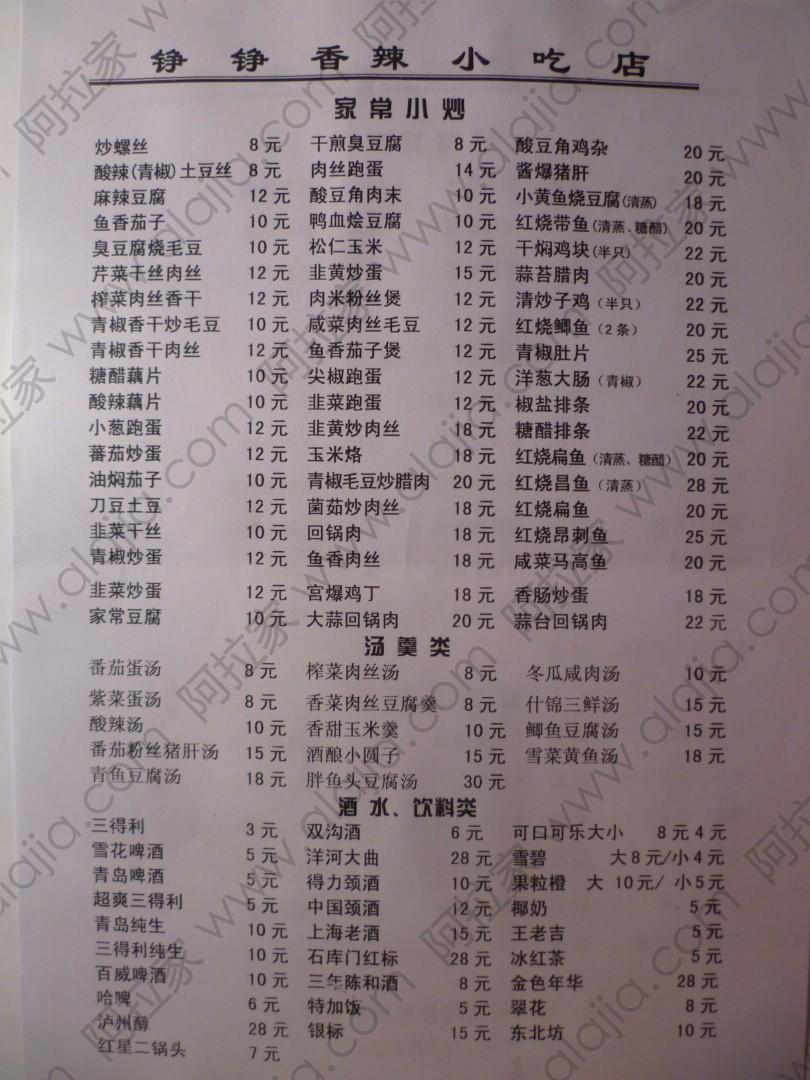 铮铮香辣小吃店
家常小炒
炒螺丝 8元 干煎臭豆腐 8元 酸豆角鸡杂 20元
酸辣(青椒)土豆丝 8元 肉丝跑蛋 14元 酱爆猪肝 20元
麻辣豆腐 12元 酸豆角肉末 10元 小黄鱼烧豆腐(清蒸) 18元
鱼香茄子 10元 鸭血烩豆腐 10元 红烧带鱼(清蒸、糖醋) 20元
臭豆腐烧毛豆 10元 松仁玉米 12元 干焖鸡块(半只) 22元
芹菜干丝肉丝 12元 韭黄炒蛋 15元 蒜苔腊肉 20元
榨菜肉丝香干 12元 肉米粉丝煲 12元 清炒子鸡(半只) 22元
青椒香干炒毛豆 10元 咸菜肉丝毛豆 12元 红烧鲫鱼(2条) 20元
青椒香干肉丝 12元 鱼香茄子煲 12元 青椒肚片 25元
糖醋藕片 10元 尖椒跑蛋 12元 洋葱大肠(青椒) 22元
酸辣藕片 10元 韭菜跑蛋 12元 椒盐排条 20元
小葱跑蛋 12元 韭黄炒肉丝 18元 糖醋排条 22元
蕃茄炒蛋 12元 玉米烙 18元 红烧扁鱼(清蒸、糖醋) 20元
油焖茄子 10元 青椒毛豆炒腊肉 20元 红烧昌鱼(清蒸) 28元
刀豆土豆 12元 菌茹炒肉丝 18元 红烧扁鱼 20元
韭菜干丝 10元 回锅肉 18元 红烧昂刺鱼 25元
青椒炒蛋 12元 鱼香肉丝 18元 咸菜马高鱼 20元
韭菜炒蛋 12元 宫爆鸡丁 18元 香肠炒蛋 18元
家常豆腐 10元 大蒜回锅肉 20元 蒜台回锅肉 22元
汤羹类
番茄蛋汤 8元 榨菜肉丝汤 8元 冬瓜咸肉汤 10元
紫菜蛋汤 8元 香菜肉丝豆腐羹 8元 什锦三鲜汤 15元
酸辣汤 10元 香甜玉米羹 10元 鲫鱼豆腐汤 15元
番茄粉丝猪肝汤 15元 酒酿小圆子 15元 雪菜黄鱼汤 18元
青鱼豆腐汤 18元 胖鱼头豆腐汤 30元
酒水、饮料类
三得利 3元 双沟酒 6元 可口可乐大小 8元4元
雪花啤酒 5元 洋河大曲 28元 雪碧 大8元/小4元
青岛啤酒 5元 得力颈酒 10元 果粒橙 大 10元/ 小5元
超爽三得利 5元 中国颈酒 12元 椰奶 5元
青岛纯生 10元 上海老酒 15元 王老吉 5元
三得利纯生 10元 石库门红标 28元 冰红茶 5元
百威啤酒 10元 三年陈和酒 8元 金色年华 28元
哈啤 6元 特加饭 5元 翠花 8元
泸州醇 28元 银标 15元 东北坊 10元
红星二锅头 7元
阿拉家 www.alajia.com